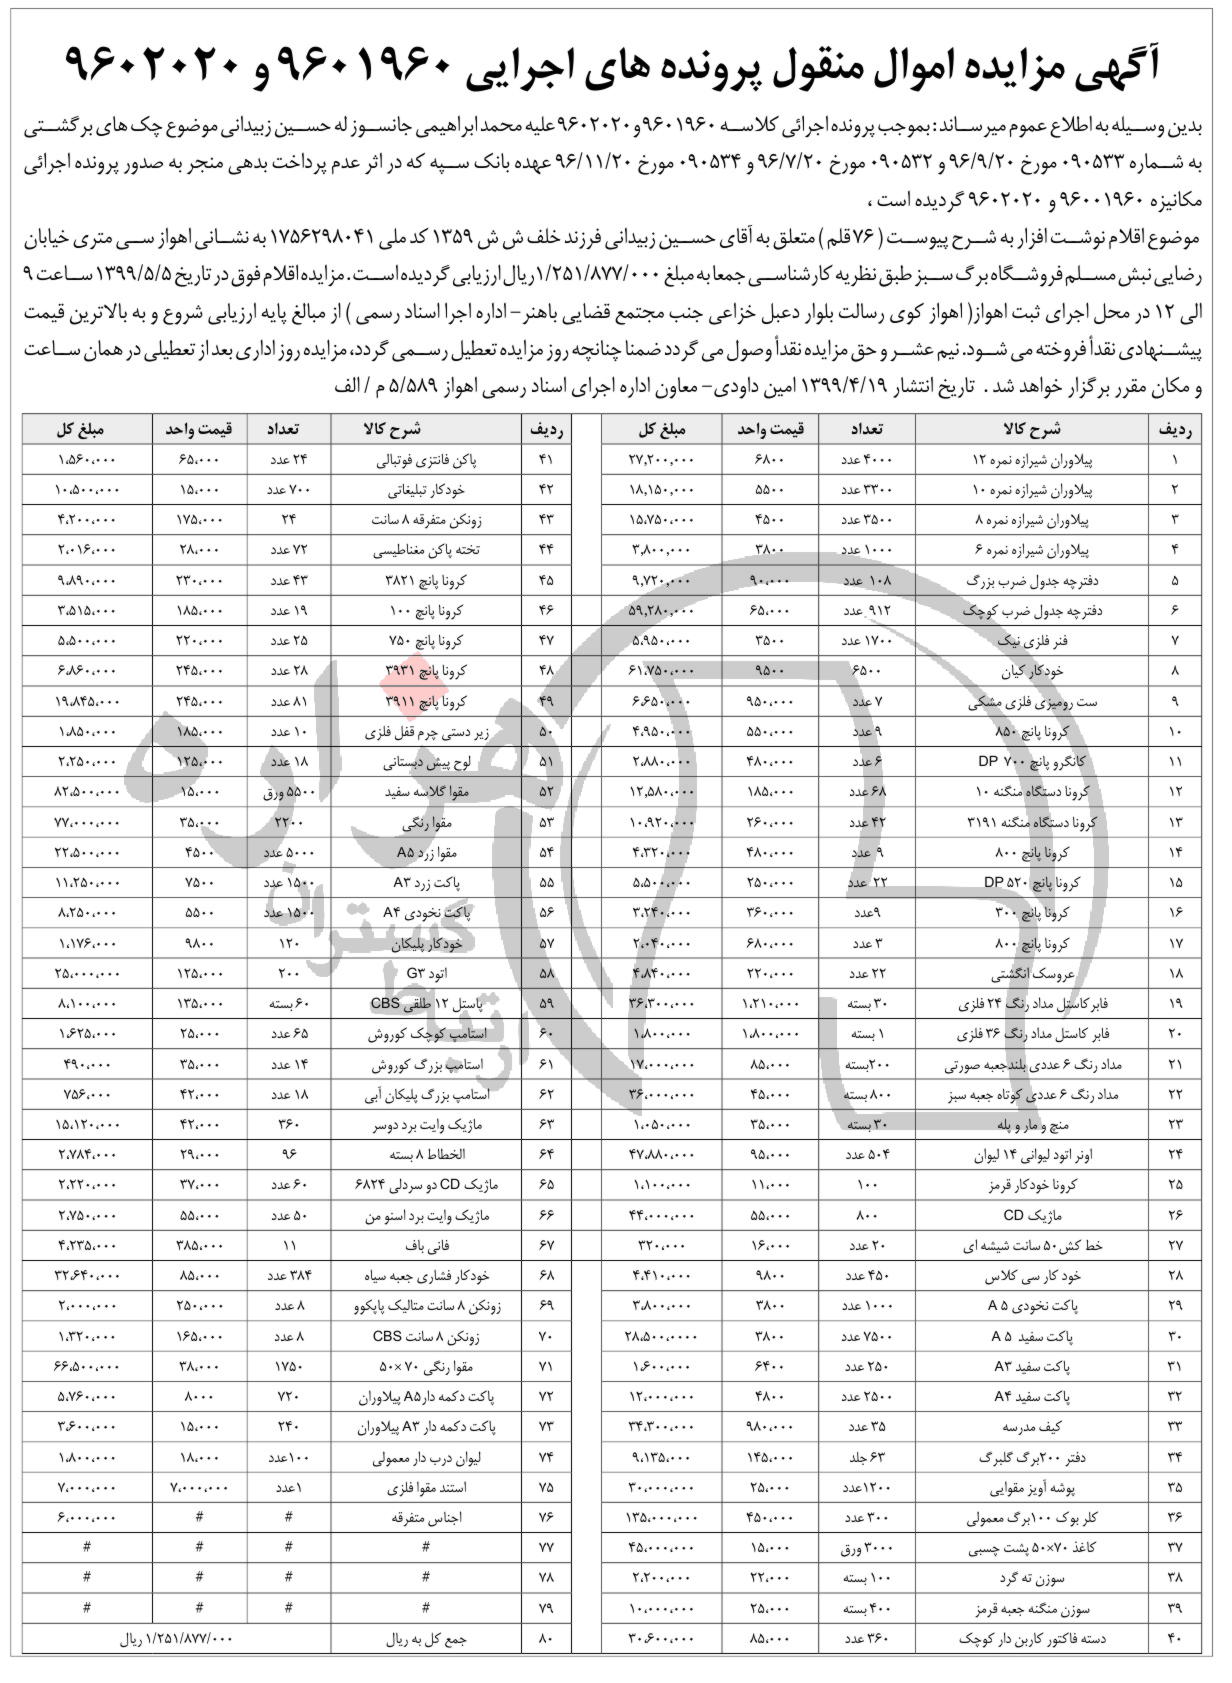 آگهی مزایده اموال منقول پرونده های اجرایی ۹۶۰۱۹۶۰ و ۹۶۰۲۰۲۰
بدین وسیله به اطلاع عموم میرساند: بموجب پرونده اجرائی کلاسه ۹۶۰۱۹۶۰و۹۶۰۲۰۲۰علیه محمد ابراهیمی جانسوز له حسین زبیدانی موضوع چک های برگشتی
به شماره ۰۹۰۵۳۳ مورخ ۹۶/۹/۲۰ و ۰۹۰۵۳۲ مورخ ۹۶/۷/۲۰ و ۰۹۰۵۳۴ مورخ ۹۶/۱۱/۲۰ عهده بانک سپه که در اثر عدم پرداخت بدهی منجر به صدور پرونده اجرائی
مکانیزه ۹۶۰۰۱۹۶۰ و ۹۶۰۲۰۲۰ گردیده است ،
موضوع اقلام نوشت افزار به شرح پیوست ( ۷۶ قلم ) متعلق به آقای حسین زبیدانی فرزند خلف ش ش ۱۳۵۹ کد ملی ۱۷۵۶۲۹۸۰۴۱ به نشانی اهواز سی متری خیابان
رضایی نبش مسلم فروشگاه برگ سبز طبق نظریه کارشناسی جمعا به مبلغ ۱/۲۵۱/۸۷۷/۰۰۰ریال ارزیابی گردیده است. مزایده اقلام فوق در تاریخ ۱۳۹۹/۵/۵ ساعت ۹
الی ۱۲ در محل اجرای ثبت اهواز( اهواز کوی رسالت بلوار دعبل خزاعی جنب مجتمع قضایی باهنر- اداره اجرا اسناد رسمی ) از مبالغ پایه ارزیابی شروع و به بالاترین قیمت
پیشنهادی نقدأ فروخته می شود. نیم عشر و حق مزایده نقدأ وصول می گردد ضمنا چنانچه روز مزایده تعطیل رسمی گردد، مزایده روز اداری بعد از تعطیلی در همان ساعت
و مکان مقرر برگزار خواهد شد . تاریخ انتشار ۱۳۹۹/۴/۱۹ امین داودی- معاون اداره اجرای اسناد رسمی اهواز ۵/۵۸۹ م / الف
ردیف شرح کالا تعداد قیمت واحد مبلغ کل ردیف شرح کالا تعداد قیمت واحد مبلغ کل
۱ پیلاوران شیرازه نمره ۱۲ ۴۰۰۰ عدد ۶۸۰۰ ۲۷,۲۰۰,۰۰۰ ۴۱ پاکن فانتزی فوتبالی ۲۴ عدد ۶۵،۰۰۰ ۱،۵۶۰،۰۰۰
۲ پیلاوران شیرازه نمره ۱۰ ۳۳۰۰ عدد ۵۵۰۰ ۱۸,۱۵۰,۰۰۰ ۴۲ خودکار تبلیغاتی ۷۰۰ عدد ۱۵،۰۰۰ ۱۰،۵۰۰،۰۰۰
۳ پیلاوران شیرازه نمره ۸ ۳۵۰۰ عدد ۴۵۰۰ ۱۵,۷۵۰,۰۰۰ ۴۳ زونکن متفرقه ۸ سانت ۲۴ ۱۷۵،۰۰۰ ۴،۲۰۰،۰۰۰
۴ پیلاوران شیرازه نمره ۶ ۱۰۰۰ عدد ۳۸۰۰ ۳,۸۰۰,۰۰۰ ۴۴ تخته پاکن مغناطیسی ۷۲ عدد ۲۸،۰۰۰ ۲،۰۱۶،۰۰۰
۵ دفترچه جدول ضرب بزرگ ۱۰۸ عدد ۹۰،۰۰۰ ۹,۷۲۰,۰۰۰ ۴۵ کرونا پانچ ۳۸۲۱ ۴۳ عدد ۲۳۰،۰۰۰ ۹،۸۹۰،۰۰۰
۶ دفترچه جدول ضرب کوچک ۹۱۲ عدد ۶۵،۰۰۰ ۵۹,۲۸۰,۰۰۰ ۴۶ کرونا پانچ ۱۰۰ ۱۹ عدد ۱۸۵،۰۰۰ ۳،۵۱۵،۰۰۰
۷ فنر فلزی نیک ۱۷۰۰ عدد ۳۵۰۰ ۵،۹۵۰،۰۰۰ ۴۷ کرونا پانچ ۷۵۰ ۲۵ عدد ۲۲۰،۰۰۰ ۵،۵۰۰،۰۰۰
۸ خودکار کیان ۶۵۰۰ ۹۵۰۰ ۶۱،۷۵۰،۰۰۰ ۴۸ کرونا پانچ ۳۹۳۱ ۲۸ عدد ۲۴۵،۰۰۰ ۶،۸۶۰،۰۰۰
۹ ست رومیزی فلزی مشکی ۷ عدد ۹۵۰،۰۰۰ ۶،۶۵۰،۰۰۰ ۴۹ کرونا پانچ ۳۹۱۱ ۸۱ عدد ۲۴۵،۰۰۰ ۱۹،۸۴۵،۰۰۰
۱۰ کرونا پانچ ۸۵۰ ۹ عدد ۵۵۰،۰۰۰ ۴،۹۵۰،۰۰۰ ۵۰ زیر دستی چرم قفل فلزی ۱۰ عدد ۱۸۵،۰۰۰ ۱،۸۵۰،۰۰۰
۱۱ کانگرو پانچ ۷۰۰ DP ۶ عدد ۴۸۰،۰۰۰ ۲،۸۸۰،۰۰۰ ۵۱ لوح پیش دبستانی ۱۸ عدد ۱۲۵،۰۰۰ ۲،۲۵۰،۰۰۰
۱۲ کرونا دستگاه منگنه ۱۰ ۶۸ عدد ۱۸۵،۰۰۰ ۱۲,۵۸۰,۰۰۰ ۵۲ مقوا گلاسه سفید ۵۵۰۰ ورق ۱۵،۰۰۰ ۸۲،۵۰۰،۰۰۰
۱۳ کرونا دستگاه منگنه ۳۱۹۱ ۴۲ عدد ۲۶۰،۰۰۰ ۱۰،۹۲۰،۰۰۰ ۵۳ مقوا رنگی ۲۲۰۰ ۳۵،۰۰۰ ۷۷،۰۰۰،۰۰۰
۱۴ کرونا پانچ ۸۰۰ ۹ عدد ۴۸۰،۰۰۰ ۴،۳۲۰،۰۰۰ ۵۴ مقوا زرد A۵ ۵۰۰۰ عدد ۴۵۰۰ ۲۲،۵۰۰،۰۰۰
۱۵ کرونا پانچ ۵۲۰ DP ۲۲ عدد ۲۵۰،۰۰۰ ۵،۵۰۰،۰۰۰ ۵۵ پاکت زرد A۳ ۱۵۰۰ عدد ۷۵۰۰ ۱۱،۲۵۰،۰۰۰
۱۶ کرونا پانچ ۳۰۰ ۹عدد ۳۶۰،۰۰۰ ۳،۲۴۰،۰۰۰ ۵۶ پاکت نخودی A۴ ۱۵۰۰ عدد ۵۵۰۰ ۸،۲۵۰،۰۰۰
۱۷ کرونا پانچ ۸۰۰ ۳ عدد ۶۸۰،۰۰۰ ۲،۰۴۰،۰۰۰ ۵۷ خودکار پلیکان ۱۲۰ ۹۸۰۰ ۱،۱۷۶،۰۰۰
۱۸ عروسک انگشتی ۲۲ عدد ۲۲۰،۰۰۰ ۴،۸۴۰،۰۰۰ ۵۸ اتود G۳ ۲۰۰ ۱۲۵،۰۰۰ ۲۵،۰۰۰،۰۰۰
۱۹ فابرکاستل مداد رنگ ۲۴ فلزی ۳۰ بسته ۱،۲۱۰،۰۰۰ ۳۶،۳۰۰،۰۰۰ ۵۹ پاستل ۱۲ طلقی CBS ۶۰ بسته ۱۳۵،۰۰۰ ۸،۱۰۰،۰۰۰
۲۰ فابر کاستل مداد رنگ ۳۶ فلزی ۱ بسته ۱،۸۰۰،۰۰۰ ۱،۸۰۰،۰۰۰ ۶۰ استامپ کوچک کوروش ۶۵ عدد ۲۵،۰۰۰ ۱،۶۲۵،۰۰۰
۲۱ مداد رنگ ۶ عددی بلندجعبه صورتی ۲۰۰بسته ۸۵،۰۰۰ ۱۷،۰۰۰،۰۰۰ ۶۱ استامپ بزرگ کوروش ۱۴ عدد ۳۵،۰۰۰ ۴۹۰،۰۰۰
۲۲ مداد رنگ ۶ عددی کوتاه جعبه سبز ۸۰۰ بسته ۴۵،۰۰۰ ۳۶،۰۰۰،۰۰۰ ۶۲ استامپ بزرگ پلیکان آبی ۱۸ عدد ۴۲،۰۰۰ ۷۵۶،۰۰۰
۲۳ منچ و مار و پله ۳۰ بسته ۳۵،۰۰۰ ۱،۰۵۰،۰۰۰ ۶۳ ماژیک وایت برد دوسر ۳۶۰ ۴۲،۰۰۰ ۱۵،۱۲۰،۰۰۰
۲۴ اونر اتود لیوانی ۱۴ لیوان ۵۰۴ عدد ۹۵،۰۰۰ ۴۷،۸۸۰،۰۰۰ ۶۴ الخطاط ۸ بسته ۹۶ ۲۹،۰۰۰ ۲،۷۸۴،۰۰۰
۲۵ کرونا خودکار قرمز ۱۰۰ ۱۱،۰۰۰ ۱،۱۰۰،۰۰۰ ۶۵ ماژیک CD دو سردلی ۶۸۲۴ ۶۰ عدد ۳۷،۰۰۰ ۲،۲۲۰،۰۰۰
۲۶ ماژیک CD ۸۰۰ ۵۵،۰۰۰ ۴۴،۰۰۰،۰۰۰ ۶۶ ماژیک وایت برد اسنو من ۵۰ عدد ۵۵،۰۰۰ ۲،۷۵۰،۰۰۰
۲۷ خط کش ۵۰ سانت شیشه ای ۲۰ عدد ۱۶،۰۰۰ ۳۲۰،۰۰۰ ۶۷ فانی باف ۱۱ ۳۸۵،۰۰۰ ۴،۲۳۵،۰۰۰
۲۸ خود کار سی کلاس ۴۵۰ عدد ۹۸۰۰ ۴،۴۱۰،۰۰۰ ۶۸ خودکار فشاری جعبه سیاه ۳۸۴ عدد ۸۵،۰۰۰ ۳۲،۶۴۰،۰۰۰
۲۹ پاکت نخودی ۵ A ۱۰۰۰ عدد ۳۸۰۰ ۳،۸۰۰،۰۰۰ ۶۹ زونکن ۸ سانت متالیک پاپکوو ۸ عدد ۲۵۰،۰۰۰ ۲،۰۰۰،۰۰۰
۳۰ پاکت سفید ۵ A ۷۵۰۰ عدد ۳۸۰۰ ۲۸،۵۰۰،۰۰۰۰ ۷۰ زونکن ۸ سانت CBS ۸ عدد ۱۶۵،۰۰۰ ۱،۳۲۰،۰۰۰
۳۱ پاکت سفید A۳ ۲۵۰ عدد ۶۴۰۰ ۱،۶۰۰،۰۰۰ ۷۱ مقوا رنگی ۷۰ ×۵۰ ۱۷۵۰ ۳۸،۰۰۰ ۶۶،۵۰۰،۰۰۰
۳۲ پاکت سفید A۴ ۲۵۰۰ عدد ۴۸۰۰ ۱۲،۰۰۰،۰۰۰ ۷۲ پاکت دکمه دارA۵ پیلاوران ۷۲۰ ۸۰۰۰ ۵،۷۶۰،۰۰۰
۳۳ کیف مدرسه ۳۵ عدد ۹۸۰،۰۰۰ ۳۴،۳۰۰،۰۰۰ ۷۳ پاکت دکمه دار A۳ پیلاوران ۲۴۰ ۱۵،۰۰۰ ۳،۶۰۰،۰۰۰
۳۴ دفتر ۲۰۰برگ گلبرگ ۶۳ جلد ۱۴۵،۰۰۰ ۹،۱۳۵،۰۰۰ ۷۴ لیوان درب دار معمولی ۱۰۰عدد ۱۸،۰۰۰ ۱،۸۰۰،۰۰۰
۳۵ پوشه آویز مقوایی ۱۲۰۰عدد ۲۵،۰۰۰ ۳۰،۰۰۰،۰۰۰ ۷۵ استند مقوا فلزی ۱عدد ۷،۰۰۰،۰۰۰ ۷،۰۰۰،۰۰۰
۳۶ کلر بوک ۱۰۰برگ معمولی ۳۰۰ عدد ۴۵۰،۰۰۰ ۱۳۵،۰۰۰،۰۰۰ ۷۶ اجناس متفرقه # # ۶،۰۰۰،۰۰۰
۳۷ کاغذ ۷۰×۵۰ پشت چسبی ۳۰۰۰ ورق ۱۵،۰۰۰ ۴۵،۰۰۰،۰۰۰ ۷۷ # # # #
۳۸ سوزن ته گرد ۱۰۰ بسته ۲۲،۰۰۰ ۲،۲۰۰،۰۰۰ ۷۸ # # # #
۳۹ سوزن منگنه جعبه قرمز ۴۰۰ بسته ۲۵،۰۰۰ ۱۰،۰۰۰،۰۰۰ ۷۹ # # # #
۴۰ دسته فاکتور کاربن دار کوچک ۳۶۰ عدد ۸۵،۰۰۰ ۳۰،۶۰۰،۰۰۰ ۸۰ جمع کل به ریال ۱/۲۵۱/۸۷۷/۰۰۰ ریال
هزاره
گستران
ارتباط